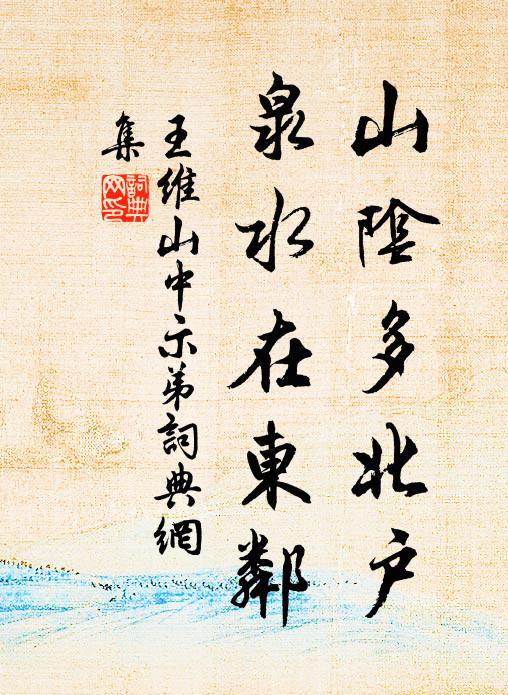 山陰多北户
泉水在東鄰
王維山中示弟詞典網
集
詞典
网印